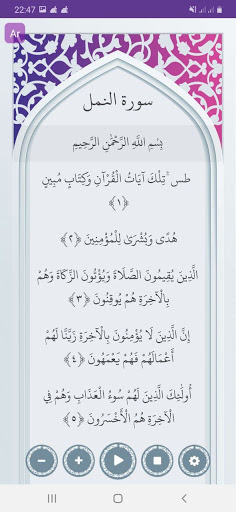 22:47
91%
Ar
سورة النمل
بِسْمِ اللَّهِ الرَّحْمَٰنِ الرَّحِيمِ
طس ۚ تِلْكَ آيَاتُ الْقُرْآنِ وَكِتَابٍ مُبِينٍ
﴿١﴾
هُدًى وَبُشْرَىٰ لِلْمُؤْمِنِينَ ﴿٢﴾
الَّذِينَ يُقِيمُونَ الصَّلَاةَ وَيُؤْتُونَ الزَّكَاةَ وَهُمْ
بِالْآخِرَةِ هُمْ يُوقِنُونَ ﴿٣﴾
إِنَّ الَّذِينَ لَا يُؤْمِنُونَ بِالْآخِرَةِ زَيَّنَّا لَهُمْ
أَعْمَالَهُمْ فَهُمْ يَعْمَهُونَ ﴿٤﴾
أُولَٰئِكَ الَّذِينَ لَهُمْ سُوءُ الْعَذَابِ وَهُمْ فِي
الْآخِرَةِ هُمُ الْأَخْسَرُونَ ﴿٥﴾